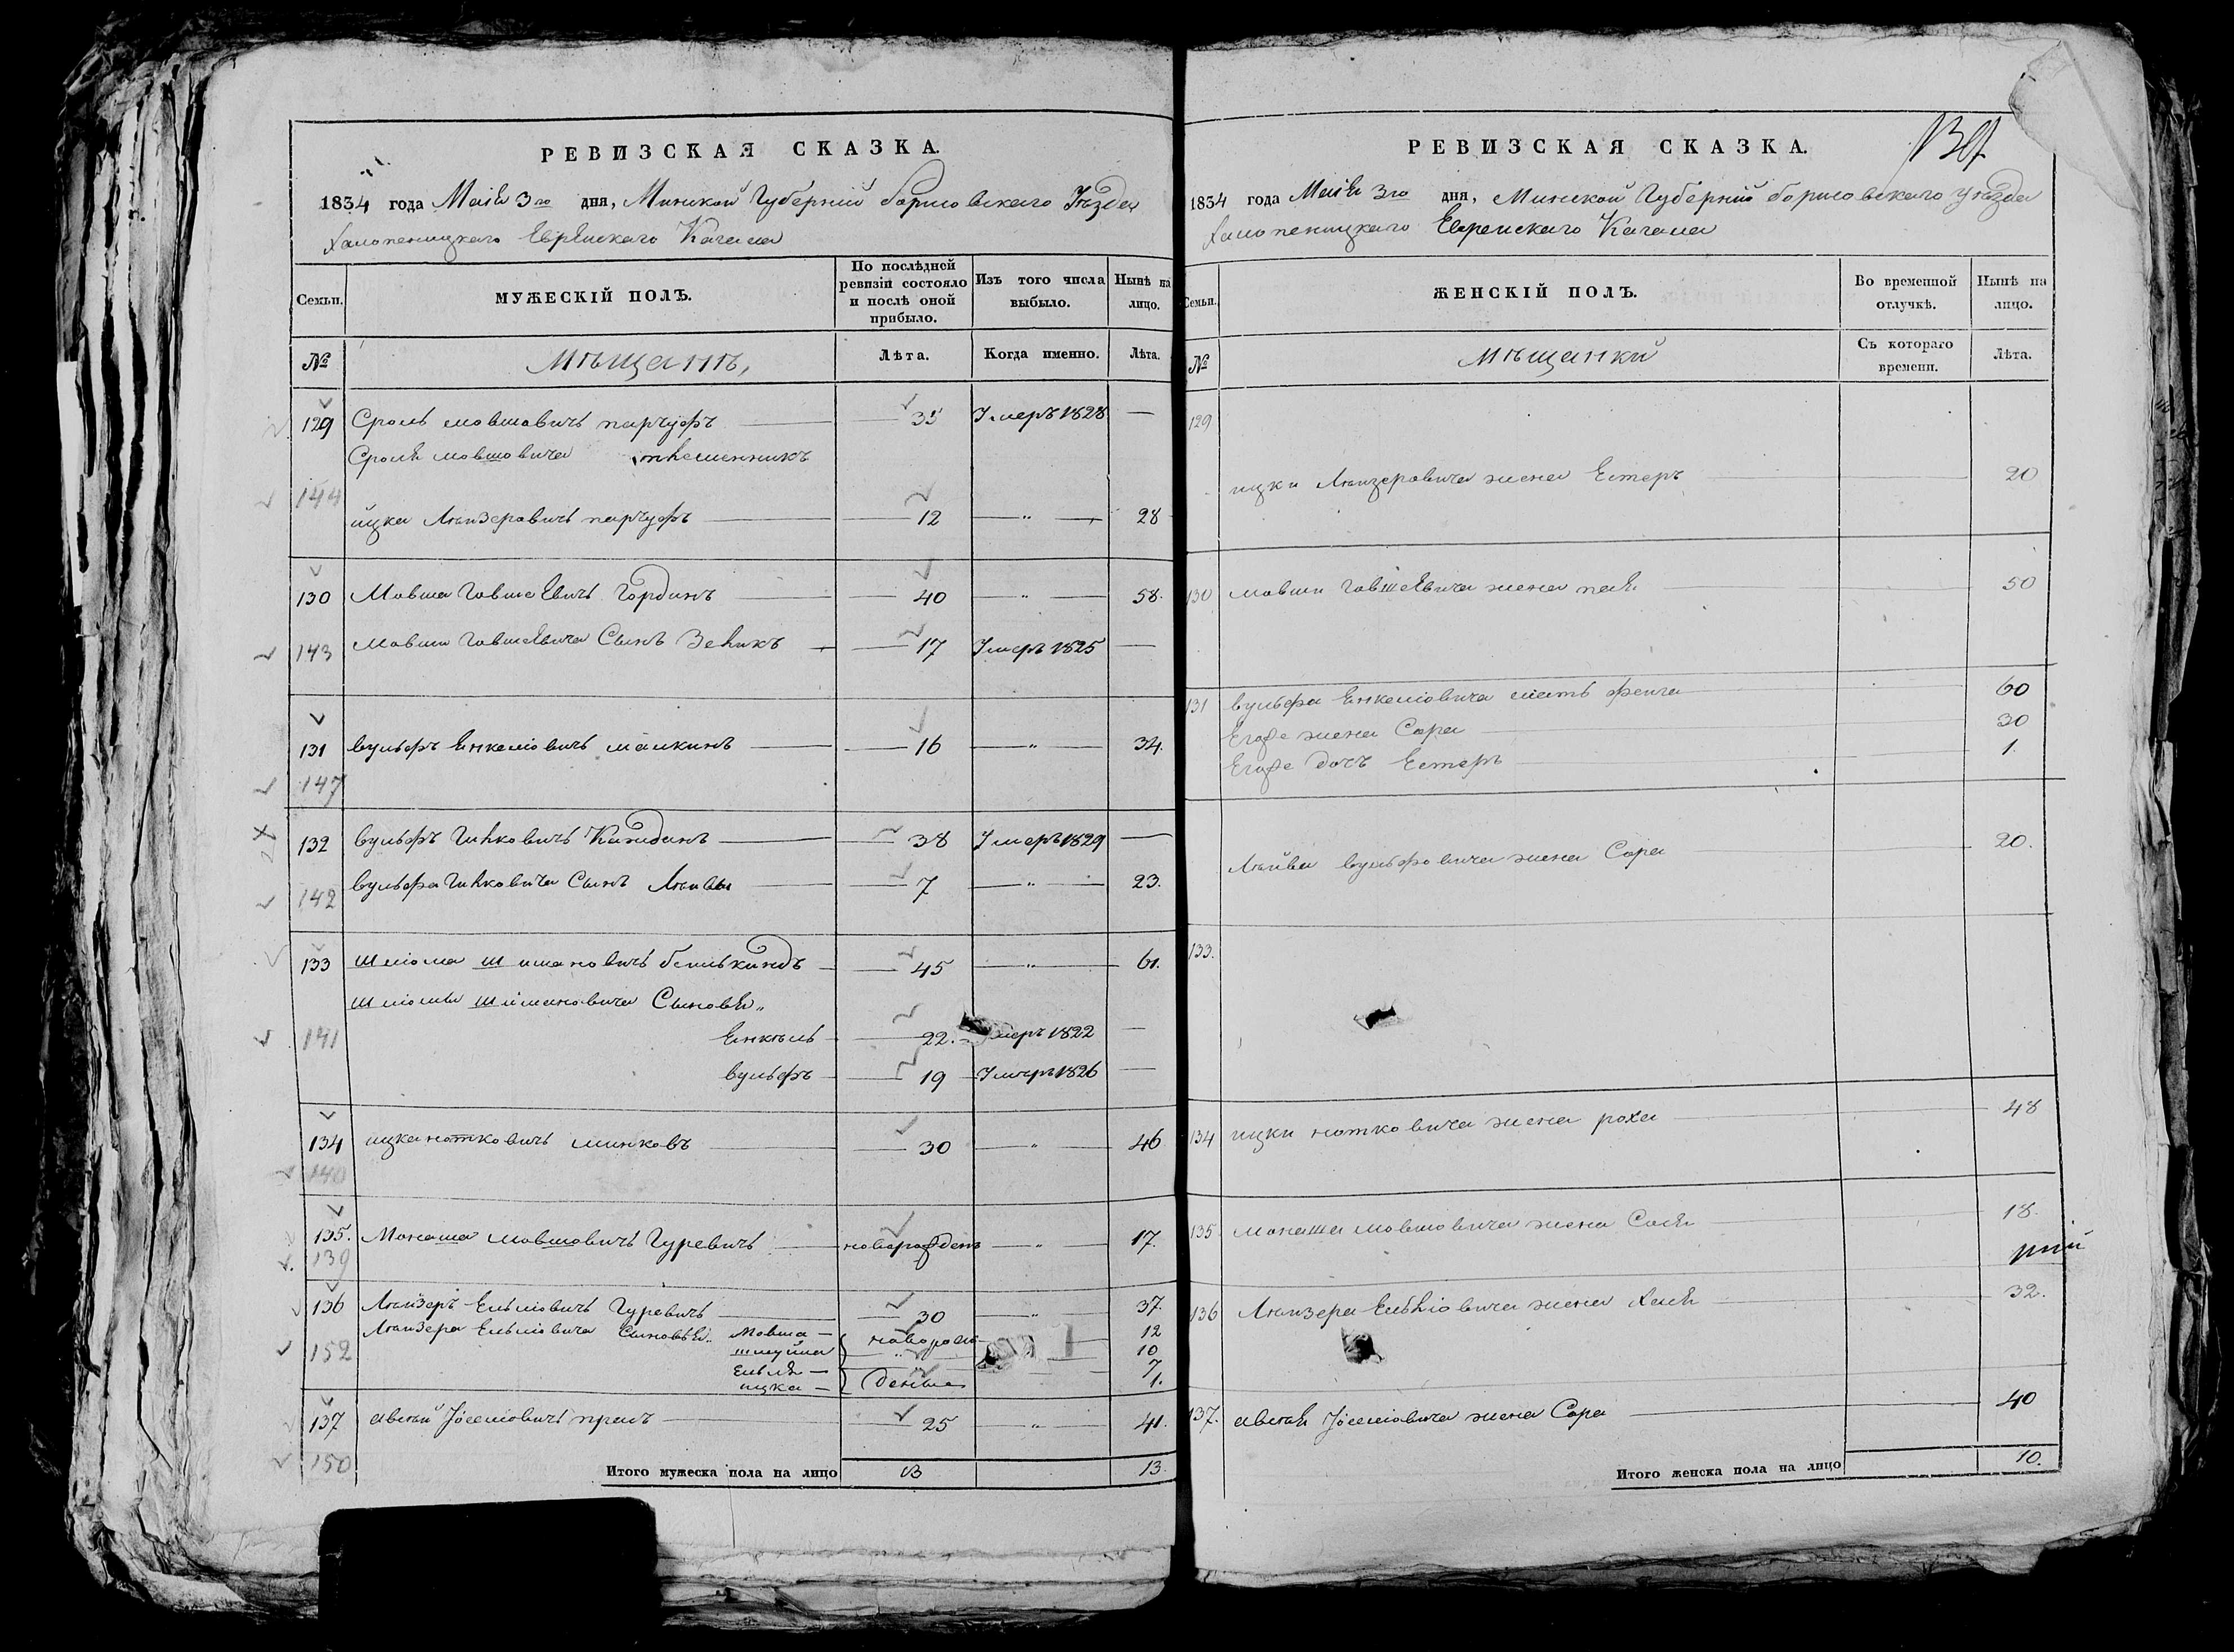 РЕВИЗСКАЯ СКАЗКА.
1834 года Маія 3го дня, Минской Губерніи борисовскаго Уѣзда
Холопеницкаго Еврейскаго Кагала
Семьи. МУЖЕСКІЙ ПОЛЪ. По послѣдней ревизіи состояло и послѣ оной прибыло. Изъ того числа выбыло. Нынѣ на лицо.
№ Мѣщанъ, Лѣта. Когда именно. Лѣта.
129 Сроль мовшовичъ парчуфъ 35 Умеръ 1828 —
Сроля мовшовича племенникъ
144
ицка Лейзеровичъ парчуфъ 12 — " — 28
130 Мовша Говшеевичъ Гординъ 40 — " — 58.
143 Мовши Говшеевича Сынъ Зеликъ 17 Умеръ 1825 —
131 вульфъ Енкелiовичъ малкинъ 16 — " — 34.
147
132 вульфъ Гилковичъ Кайдинъ 38 Умеръ 1829 —
142 вульфа Гилковича Сынъ Лейва 7 — " — 23.
133 шліома шимановичъ белькиндъ 45 — " — 61.
шліомы шимановича Сыновья "
141 Енкель 22. Умеръ 1822 —
вульфъ 19 Умеръ 1826 —
134 ицка нотковичъ минковъ 30 — " — 46
140
135. Монаша мовшовичъ Гуревичъ новорожденъ — " — 17.
139
136 Лейзеръ Ельiовичъ Гуревичъ 30 " 37.
Лейзера Ельiовича Сыновья " Мовша — новорож 12
152 шлуйма " 10
Ельля — 7
ицка — дены 1.
137 авсей Іоселiовичъ пралъ 25 " 41.
150 Итого мужеска пола на лицо 13 13.
РЕВИЗСКАЯ СКАЗКА.
1834 года Маія 3го дня, Минской Губерніи борисовскаго уѣзда
Холопеницкаго Еврейскаго Кагала
Семьи. ЖЕНСКІЙ ПОЛЪ. Во временной отлучкѣ. Нынѣ на лицо.
№ Мѣщанки Съ котораго времени. Лѣта.
129
ицки Лейзеровича жена Естеръ 20
130 мовши Говшеевича жена пая 50
131 вульфа Енкелiовича мать фейга 60
Егоже жена Сора 30
Егоже дочъ Естеръ 1.
Лейвы вульфовича жена Сора 20.
133.
134 ицки нотковича жена роха 48
135 монаша мовшовича жена Сося 18.
136 Лейзера Ельiовича жена Хася 32.
137. авсея Іоселiовича жена Сора 40
Итого женска пола на лицо 10.